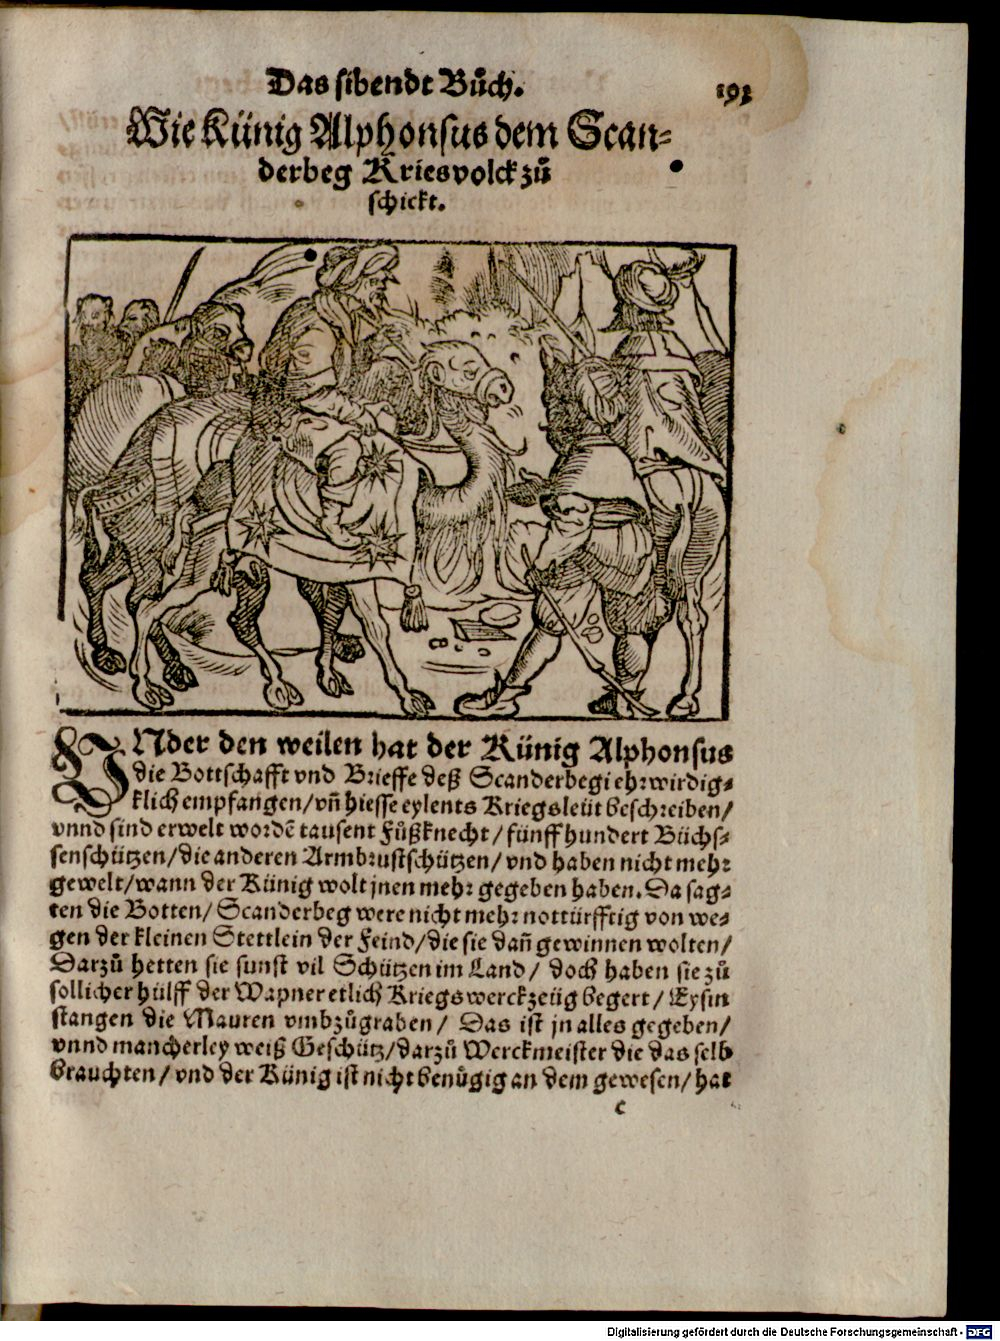 Das sibendt Bůch.
193
Wie Künig Alphonsus dem Scan-
derbeg Kriesvolck zů
schickt.
INder den weilen hat der Künig Alphonsus
die Bottschafft vnd Brieffe deß Scanderbegi ehrwirdig-
klich empfangen/ vñ hiesse eylents Kriegsleüt beschreiben/
vnnd sind erwelt wordẽ tausent Fůßknecht/ fünff hundert Büchs-
senschützen/ die anderen Armbrustschützen/ vnd haben nicht mehr
gewelt/ wann der Künig wolt jnen mehr gegeben haben. Da sag-
ten die Botten/ Scanderbeg were nicht mehr nottürfftig von we-
gen der kleinen Stettlein der Feind/ die sie dañ gewinnen wolten/
Darzů hetten sie sunst vil Schützen im Land/ doch haben sie zů
sollicher hülff der Wapner etlich Kriegswerckzeüg begert/ Eysin
stangen die Mauren vmbzůgraben/ Das ist jn alles gegeben/
vnnd mancherley weiß Geschütz/ darzů Werckmeister die das selb
brauchten/ vnd der Künig ist nicht benůgig an dem gewesen/ hat
c
Digitalisierung gefördert durch die Deutsche Forschungsgemeinschaft - DFG